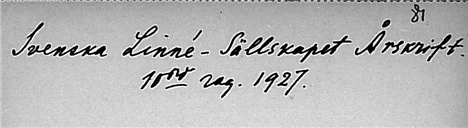 81
Svenska Linné-Sällskapet Årskrift.
10de rag. 1927.